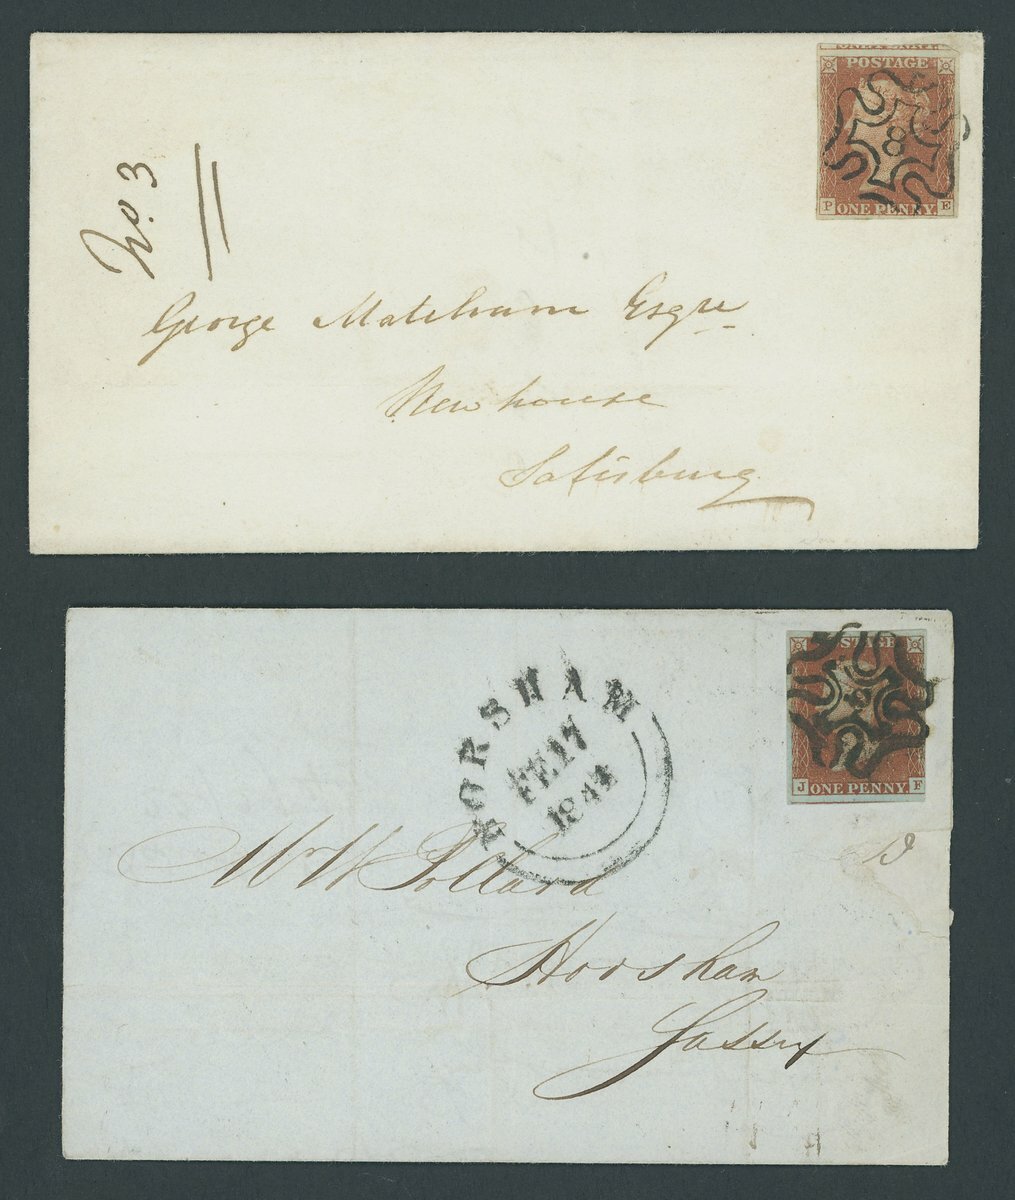 POSTAGE
8
P ONE PENNY E
No. 3
George Matcham Esqre
New house
Salisbury
STAGE
8
J ONE PENNY F
HORSHAM
FE 17
1844
Mr W Pollard
Horsham
Sussex